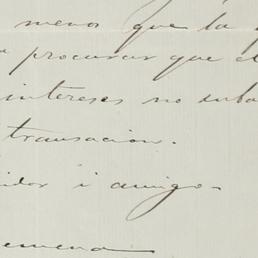 menos que la
procurar que el
intereses no suba
transacion.
idor i amigo
emena